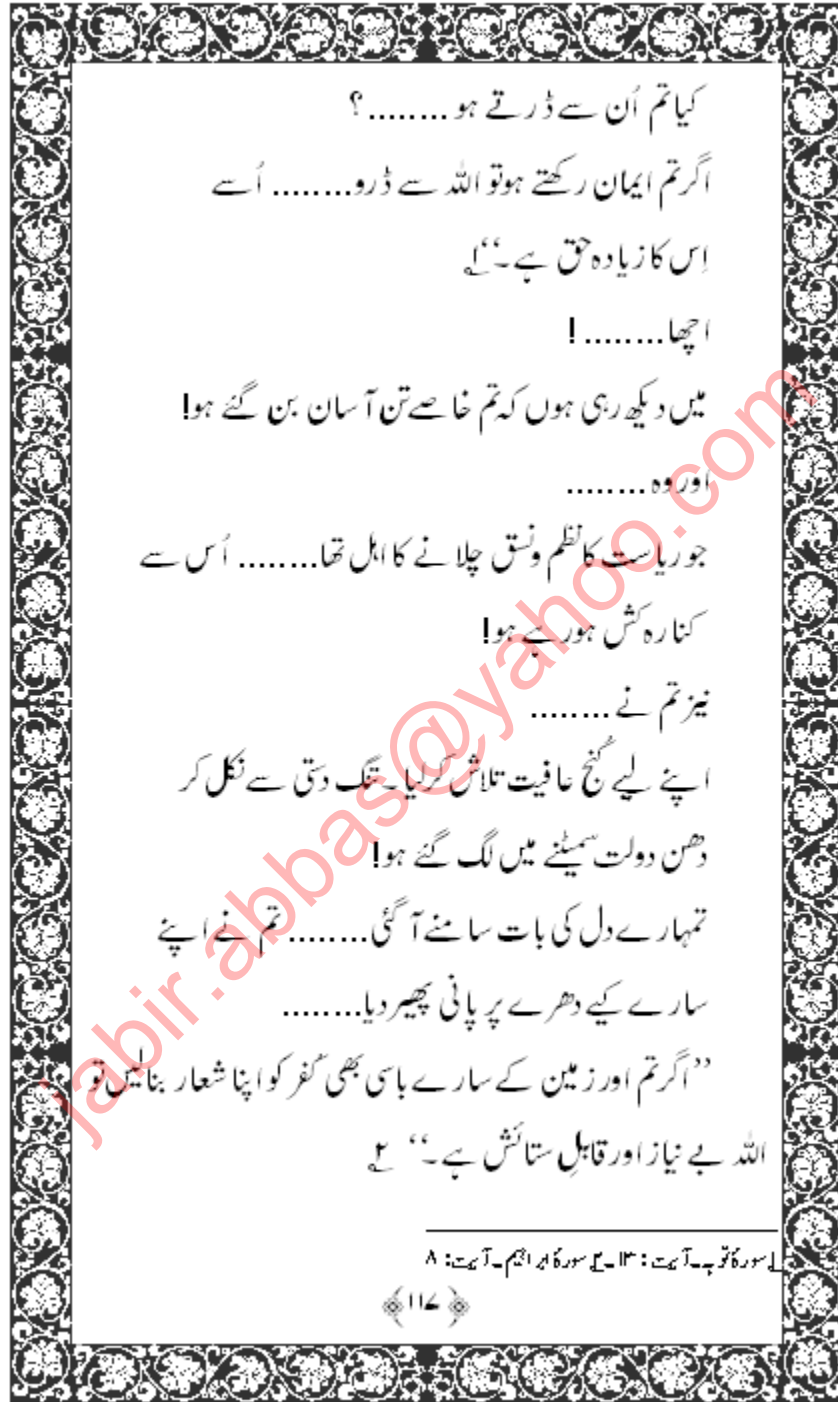 کیا تم اُن سے ڈرتے ہو ........ ؟
اگر تم ایمان رکھتے ہو تو اللہ سے ڈرو........ اُسے
اِس کا زیادہ حق ہے ۔‘‘ ۱؎
اچھا........ !
میں دیکھ رہی ہوں کہ تم خاصے تن آسان بن گئے ہو!
اور وہ ........
جو ریاست کا نظم ونسق چلانے کا اہل تھا........ اُس سے
کنارہ کش ہو رہے ہو!
نیز تم نے ........
اپنے لیے کُنجِ عافیت تلاش کر لیا۔ تنگ دستی سے نکل کر
دھن دولت سمیٹنے میں لگ گئے ہو!
تمہارے دل کی بات سامنے آ گئی........ تم نے اپنے
سارے کیے دھرے پر پانی پھیر دیا........
’’اگر تم اور زمین کے سارے باسی بھی کُفر کو اپنا شعار بنالیں تو
اللہ بے نیاز اور قابلِ ستائش ہے ۔‘‘ ۲؎
۱؎ سورۂ توبہ۔ آیت : ۱۳ ۔ ۲؎ سورۂ ابراہیم۔ آیت: ۸
﴿۱۱۷﴾
jabir.abbas@yahoo.com